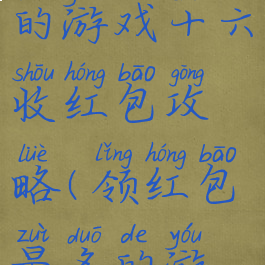 的游戏十六
shōu hóng bāo gōng
收红包攻
lüè lǐng hóng bāo
略(领红包
zuì duō de yóu
最多的游